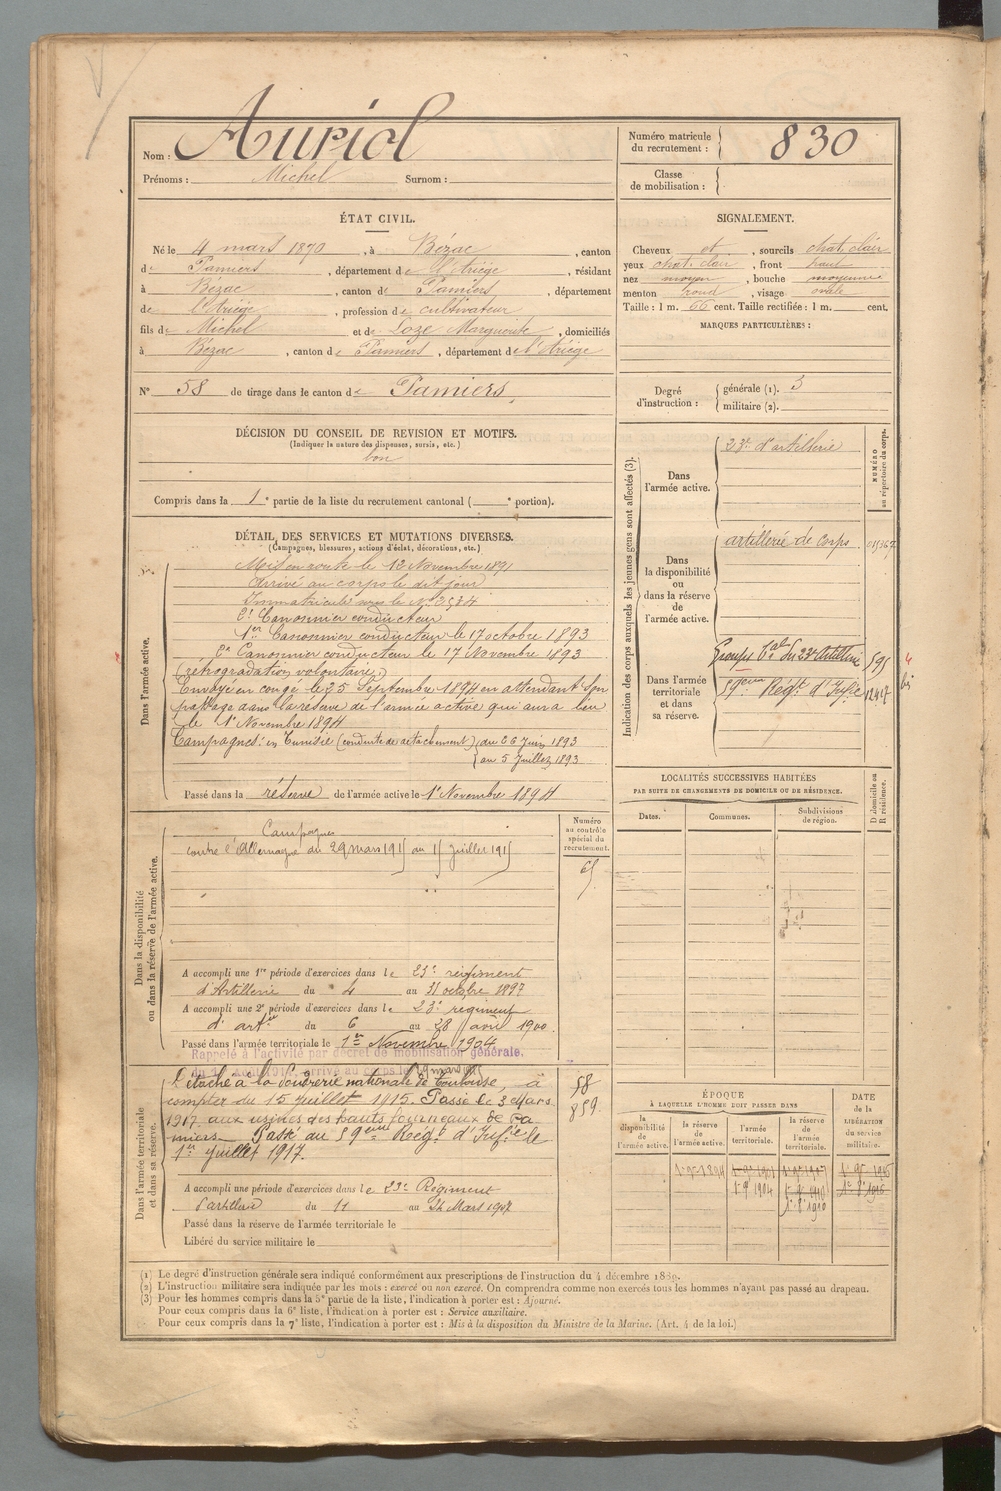 Nom : Auriol
Prénoms : Michel Surnom :
Numéro matricule du recrutement : 830
Classe de mobilisation :
ÉTAT CIVIL.
Né le 4 mars 1870, à Bézac, canton
de Pamiers, département de l'Ariège, résidant
à Bézac, canton de Pamiers, département
de l'Ariège, profession de cultivateur
fils de Michel et de Loze Marguerite, domiciliés
à Bézac, canton de Pamiers, département de l'Ariège
N° 58 de tirage dans le canton de Pamiers
SIGNALEMENT.
Cheveux et, sourcils chat. clair
yeux chat. clair, front haut
nez moyen, bouche moyenne
menton rond, visage ovale
Taille : 1 m. 66 cent. Taille rectifiée : 1 m. cent.
MARQUES PARTICULIÈRES :
Degré d'instruction : générale (1). 3
militaire (2).
DÉCISION DU CONSEIL DE REVISION ET MOTIFS.
(Indiquer la nature des dispenses, sursis, etc.)
bon
Compris dans la 1e partie de la liste du recrutement cantonal ( e portion).
DÉTAIL DES SERVICES ET MUTATIONS DIVERSES.
(Campagnes, blessures, actions d'éclat, décorations, etc.)
Dans l'armée active.
Mis en route le 12 Novembre 1891
Arrivé au corps le dit jour
Immatriculé sous le N° 2534
2e Canonnier conducteur
1er Canonnier conducteur le 17 octobre 1893
2e Canonnier conducteur le 17 Novembre 1893
(rétrogradation volontaire)
Envoyé en congé le 25 Septembre 1894 en attendant son
passage dans la réserve de l'armée active qui aura lieu
le 1er Novembre 1894
Campagnes : en Tunisie (conduite de détachement) du 26 Juin 1893
au 5 Juillet 1893
Passé dans la réserve de l'armée active le 1er Novembre 1894
Indication des corps auxquels les jeunes gens sont affectés (3).
NUMÉRO au répertoire du corps.
Dans l'armée active.
23e d'artillerie
Dans la disponibilité ou dans la réserve de l'armée active.
artillerie de Corps
Dans l'armée territoriale et dans sa réserve.
Groupe tal du 23e Artillerie 595
59ème Régt d'Infie 12417
4 bis
LOCALITÉS SUCCESSIVES HABITÉES
PAR SUITE DE CHANGEMENTS DE DOMICILE OU DE RÉSIDENCE.
Dates. Communes. Subdivisions de région. D domicile ou R résidence.
Dans la disponibilité ou dans la réserve de l'armée active.
Numéro au contrôle spécial du recrutement.
Campagnes
contre l'Allemagne du 29 mars 1915 au 15 juillet 1915
A accompli une 1re période d'exercices dans le 23e régiment
d'Artillerie du 4 au 31 octobre 1897
A accompli une 2e période d'exercices dans le 23e régiment
d'artie du 6 au 28 avril 1900.
Passé dans l'armée territoriale le 1er Novembre 1904
Rappelé à l'activité par décret de mobilisation générale.
Dans l'armée territoriale et dans sa réserve.
Détaché à la Poudrerie nationale de Toulouse, à
compter du 15 Juillet 1915. Passé le 3 Mars
1917 aux usines des hauts fourneaux de Pa-
miers. Passé au 59ème Régt d'Infie le
1er Juillet 1917.
58
859.
A accompli une période d'exercices dans le 23e Régiment
d'artillerie du 11 au 24 Mars 1907
Passé dans la réserve de l'armée territoriale le
Libéré du service militaire le
ÉPOQUE
À LAQUELLE L'HOMME DOIT PASSER DANS
la disponibilité de l'armée active. la réserve de l'armée active. l'armée territoriale. la réserve de l'armée territoriale.
DATE de la LIBÉRATION du service militaire.
(1) Le degré d'instruction générale sera indiqué conformément aux prescriptions de l'instruction du 4 décembre 1889.
(2) L'instruction militaire sera indiquée par les mots : exercé ou non exercé. On comprendra comme non exercés tous les hommes n'ayant pas passé au drapeau.
(3) Pour les hommes compris dans la 5e partie de la liste, l'indication à porter est : Ajourné.
Pour ceux compris dans la 6e liste, l'indication à porter est : Service auxiliaire.
Pour ceux compris dans la 7e liste, l'indication à porter est : Mis à la disposition du Ministre de la Marine. (Art. 4 de la loi.)